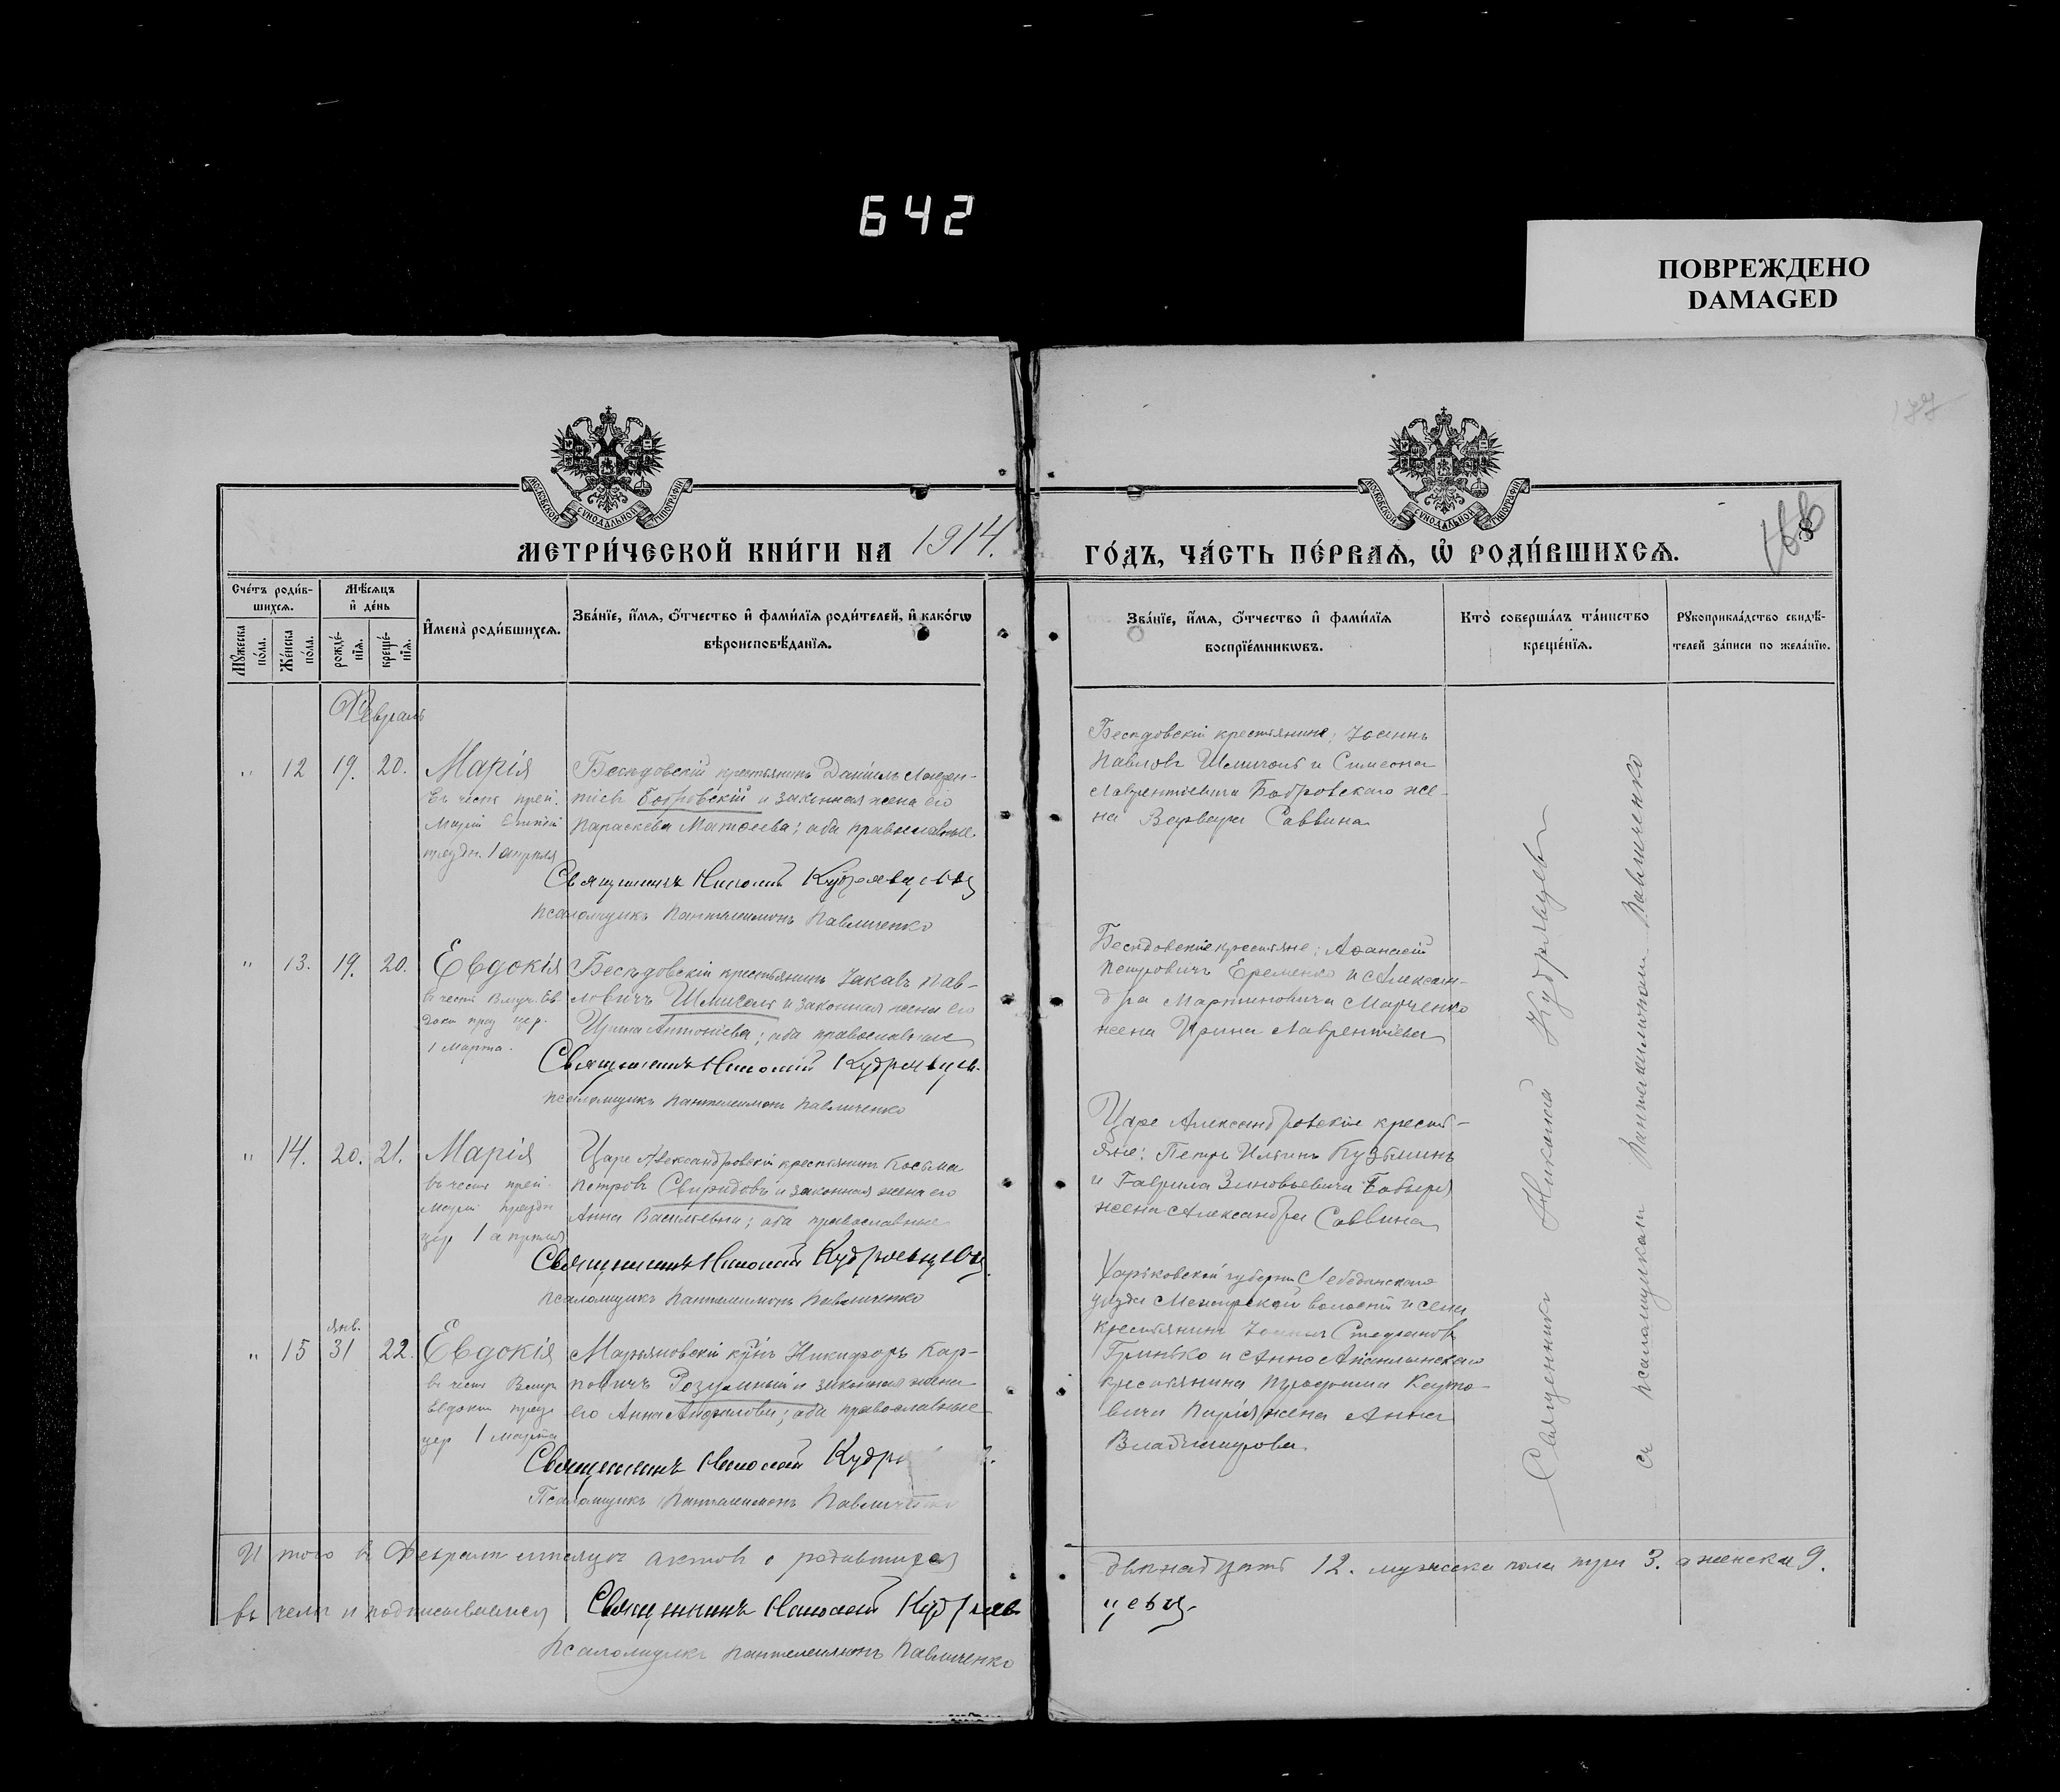 642
ПОВРЕЖДЕНО
DAMAGED
177
МОСКОВСКОЙ СѴНОДАЛЬНОЙ ТИПОГРАФІИ
МОСКОВСКОЙ СѴНОДАЛЬНОЙ ТИПОГРАФІИ
МЕТРИ́ЧЕСКОЙ КНИ́ГИ НА 1914. ГО́ДЪ, ЧА́СТЬ ПЕ́РВАѦ, Ѡ҆ РОДИ́ВШИХСѦ.
Сче́тъ роди́в-
шихсѧ.
Мѹ́жеска по́ла.
Же́нска по́ла.
Мѣ́сѧцъ
и҆ де́нь
рожде́-
нїѧ.
креще́-
нїѧ.
И҆мена̀ роди́вшихсѧ.
Зва́нїе, и҆́мѧ, ѻ҆́тчество и҆ фами́лїѧ роди́телей, и҆ како́гѡ
вѣроисповѣ́данїѧ.
Зва́нїе, и҆́мѧ, ѻ҆́тчество и҆ фами́лїѧ
воспрїе́мникѡвъ.
Кто̀ соверша́лъ та́инство
креще́нїѧ.
Рѹкоприкла́дство свидѣ́-
телей за́писи по жела́нїю.
Февраль
" 12 19. 20. Марія
въ честь преп.
Маріи Египет
празд. 1 апрѣля
Бесѣдовскій крестьянинъ Даніилъ Лаврен-
тіевъ Бобровскій и законная жена его
Параскева Матѳеева; оба православные
Священникъ Николай Кудрявцевъ
Псаломщикъ Пантелеимонъ Павличенко
Бесѣдовскій крестьянине: Іоаннъ
Павловъ Шмиголь и Симеона
Лаврентіевича Бобровскаго же-
на Варвара Саввина
" 13. 19. 20. Евдокія
въ честь Вмуч. Ев
докіи праз цер.
1 Марта.
Бесѣдовскій крестьянинъ Іаковъ Пав-
ловичъ Шмиголь и законная жена его
Ирина Антоніева; оба православные
Священникъ Николай Кудрявцевъ
Псаломщикъ Пантелеимонъ Павличенко
Бесѣдовскіе крестьяне: Аѳанасій
Петровичъ Еременко и Алексан-
дра Мартиновича Марченко
жена Ирина Лаврентіева
" 14. 20. 21. Марія
въ честь преп.
Маріи праздн
цер 1 апрѣля
Царе Александровскій крестьянинъ Косьма
Петровъ Свиридовъ и законная жена его
Анна Васильевна; оба православные
Священникъ Николай Кудрявцевъ
Псаломщикъ Пантелеимонъ Павличенко
Царе Александровскіе кресть-
яне: Петръ Ильинъ Кузьминъ
и Гавріила Зиновьевича Бабыря
жена Александра Саввина
янв.
" 15 31 22. Евдокія
въ честь Вмуч
Евдокіи празд
цер 1 марта
Марьяновскій Никифоръ Кар-
повичъ Розумный и законная жена
его Анна Анфилова; оба православные
Священникъ Николай Кудр
Псаломщикъ Пантелеимонъ Павличенко
Харьковской губерніи Лебединскаго
уѣзда волости и села
крестьянинъ Іоаннъ Стефановъ
Гринько и
крестьянина
жена Анна
Владимирова
Священникъ Николай Кудрявцевъ
съ псаломщикомъ Пантелеимономъ Павличенко
Итого въ Февралѣ мѣсяцѣ актовъ о родившихся двѣнадцать 12. мужска пола три 3. а женска 9.
въ чемъ и подписываемся Священникъ Николай Кудряв
цевъ
Псаломщикъ Пантелеимонъ Павличенко